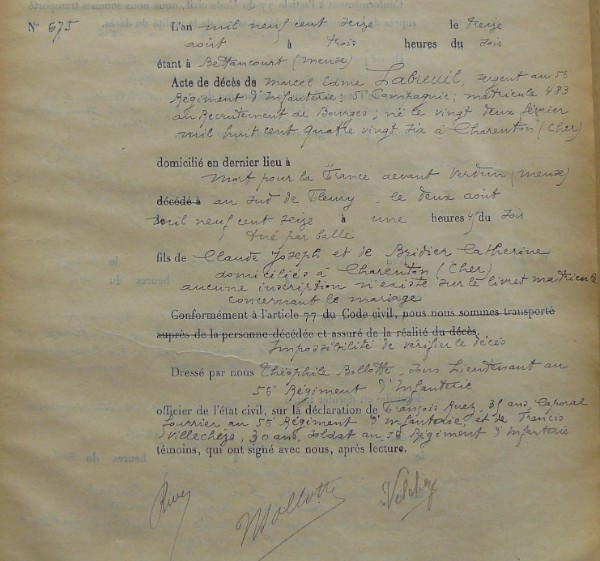 N° 675
L'an mil neuf cent seize le treize
août à trois heures du soir
étant à Bettancourt (Meuse)
Acte de décès de Marcel Edme Labreuil, sergent au 56
Régiment d'Infanterie; 5e Compagnie; matricule 483
au Recrutement de Bourges; né le vingt deux février
mil huit cent quatre vingt six à Charenton (Cher)
domicilié en dernier lieu à
Mort pour la France devant Verdun (Meuse)
décédé à au sud de Fleury le deux août
mil neuf cent seize à une heures du soir
tué par balle
fils de Claude Joseph et de Bridier Catherine
domiciliés à Charenton (Cher)
aucune inscription n'existe sur le livret matricule
concernant le mariage
Conformément à l'article 77 du Code civil, nous nous sommes transporté
auprès de la personne décédée et assuré de la réalité du décès.
Impossibilité de vérifier le décès
Dressé par nous Théophile Bollotte, Sous Lieutenant au
56 Régiment d'Infanterie
officier de l'état civil, sur la déclaration de François ans Caporal
fourrier au 56 Régiment d'Infanterie et de Francis
30 ans, soldat au 56 Régiment d'Infanterie
témoins, qui ont signé avec nous, après lecture.